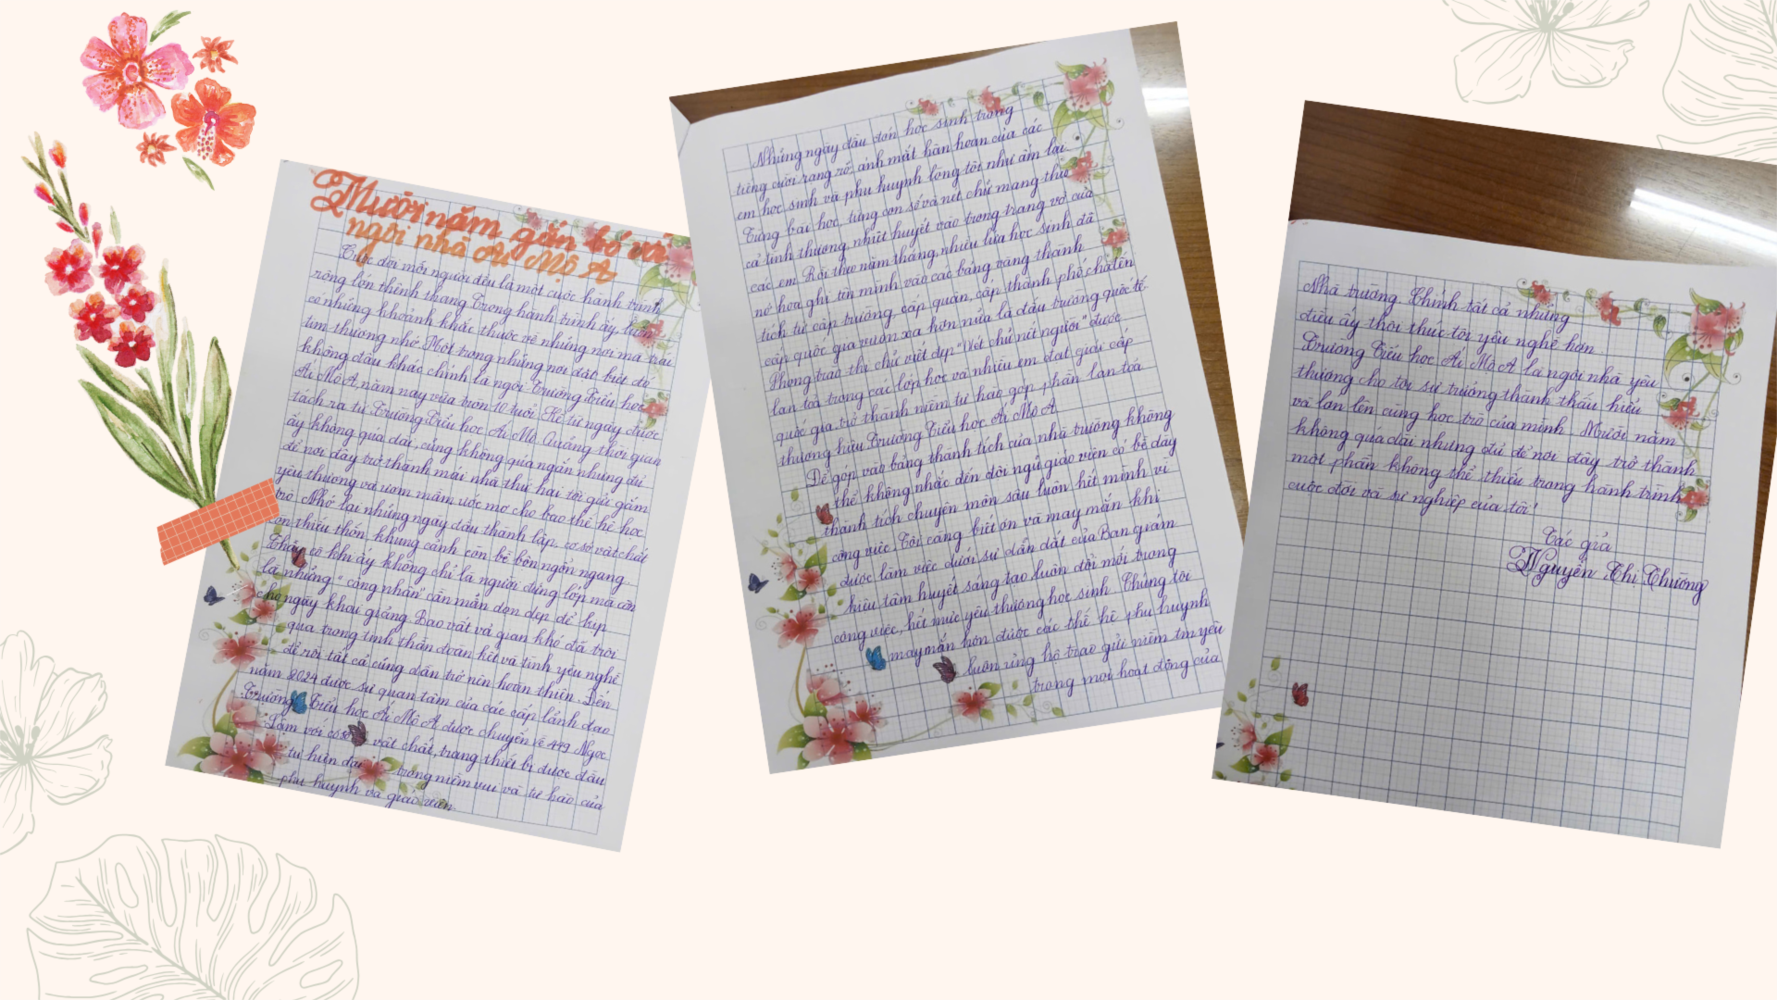 Mười năm gắn bó với
ngôi nhà Ái Mộ A
Cuộc đời mỗi người đều là một cuộc hành trình
rộng lớn thênh thang. Trong hành trình ấy, luôn
có những khoảnh khắc thuộc về những nơi mà trái
tim thương nhớ. Một trong những nơi đặc biệt đó
không đâu khác chính là ngôi Trường Tiểu học
Ái Mộ A năm nay vừa tròn 10 tuổi. Kể từ ngày được
tách ra từ Trường Tiểu học Ái Mộ. Quãng thời gian
ấy không quá dài, cũng không quá ngắn nhưng đủ
để nơi đây trở thành mái nhà thứ hai tôi gửi gắm
yêu thương và ươm mầm ước mơ cho bao thế hệ học
trò. Nhớ lại những ngày đầu thành lập, cơ sở vật chất
còn thiếu thốn, khung cảnh còn bề bộn ngổn ngang...
Thầy cô khi ấy không chỉ là người đứng lớp mà còn
là những "công nhân" cần mẫn dọn dẹp để kịp
cho ngày khai giảng. Bao vất vả gian khó đã trôi
qua trong tinh thần đoàn kết và tình yêu nghề
để rồi tất cả cùng dần trở nên hoàn thiện. Đến
năm 2024 được sự quan tâm của các cấp lãnh đạo
Trường Tiểu học Ái Mộ A được chuyển về 449 Ngọc
Lâm với cơ sở vật chất, trang thiết bị được đầu
tư hiện đại trong niềm vui và tự hào của
phụ huynh và giáo viên.
Những ngày đầu đón học sinh trong
tiếng cười rạng rỡ, ánh mắt hân hoan của các
em học sinh và phụ huynh lòng tôi như ấm lại
Từng bài học, từng con số và nét chữ mang theo
cả tình thương nhiệt huyết vào trong trang vở của
các em. Rồi theo năm tháng, nhiều lứa học sinh đã
nở hoa ghi tên mình vào các bảng vàng thành
tích từ cấp trường, cấp quận, cấp thành phố, chạm
cấp quốc gia vươn xa hơn nữa là đấu trường quốc tế.
Phong trào thi chữ viết đẹp "Nét chữ nết người" được
lan toả trong các lớp học và nhiều em đạt giải cấp
quốc gia trở thành niềm tự hào góp phần lan toả
thương hiệu Trường Tiểu học Ái Mộ A.
Để góp vào bảng thành tích của nhà trường không
thể không nhắc đến đội ngũ giáo viên có bề dày
thành tích chuyên môn sâu luôn hết mình vì
công việc. Tôi càng biết ơn và may mắn khi
được làm việc dưới sự dẫn dắt của Ban giám
hiệu tâm huyết sáng tạo luôn đổi mới trong
công việc, hết mực yêu thương học sinh. Chúng tôi
may mắn hơn được các thế hệ phụ huynh
luôn ủng hộ trao gửi niềm tin yêu
trong mọi hoạt động của
Nhà trường. Chính tất cả những
điều ấy thôi thúc tôi yêu nghề hơn.
Trường Tiểu học Ái Mộ A là ngôi nhà yêu
thương cho tôi sự trưởng thành thấu hiểu
và lớn lên cùng học trò của mình. Mười năm
không quá dài nhưng đủ để nơi đây trở thành
một phần không thể thiếu trong hành trình
cuộc đời và sự nghiệp của tôi!
Tác giả
Nguyễn Thị Thường